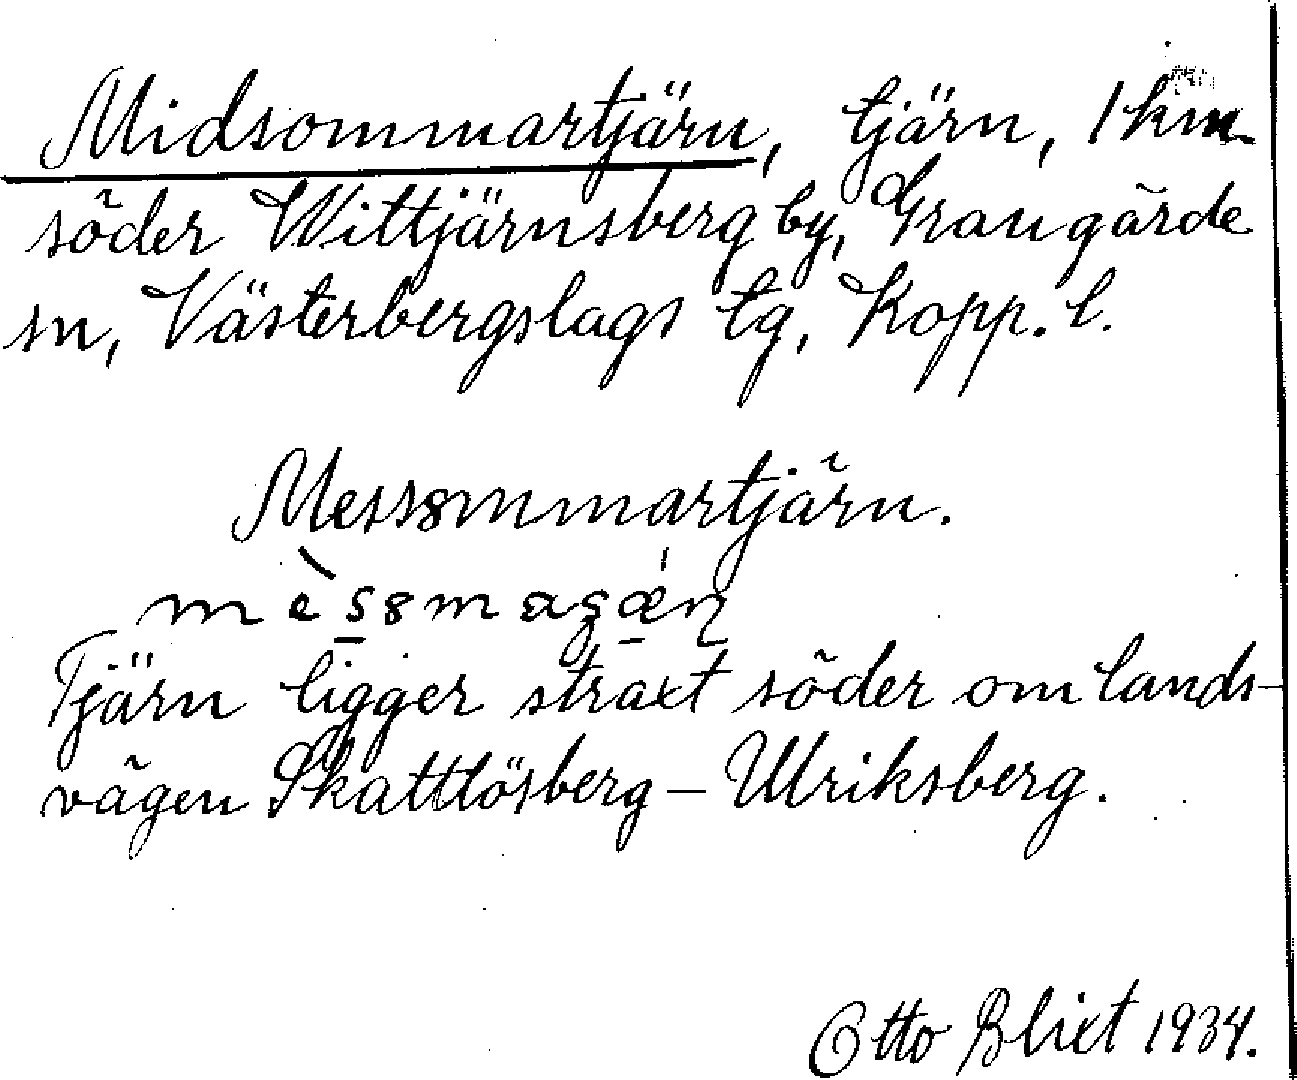 Midsommartjärn, tjärn, 1 km
söder Wittjärnsberg by, Grangärde
sn, Västerbergslags tg, Kopp. l.
Messommartjärn.
Tjärn ligger straxt söder om lands-
vägen Skattlösberg – Ulriksberg.
Otto Blixt 1934.